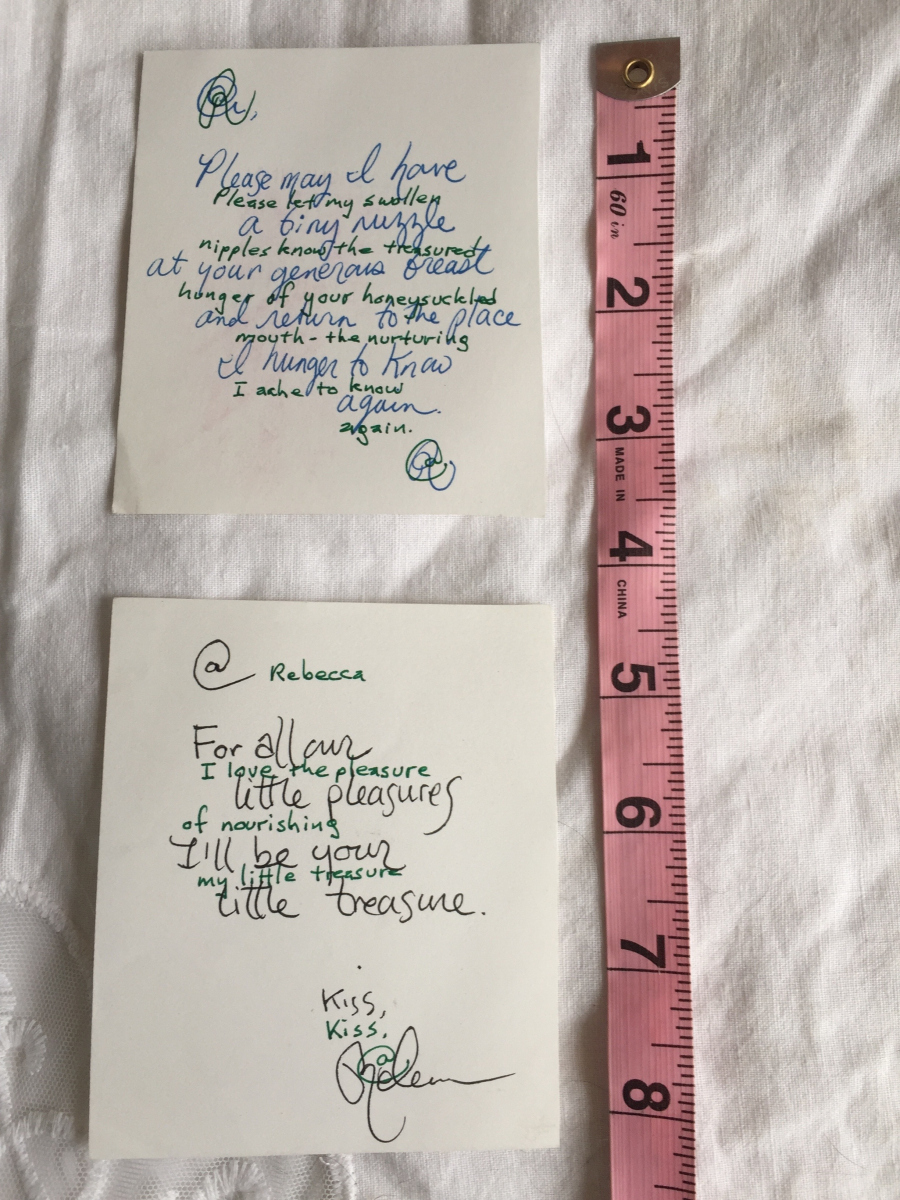 Please may I have
Please let my swollen
a tiny nuzzle
nipples know the treasured
at your generous breast
hunger of your honeysuckled
and return to the place
mouth - the nurturing
I hunger to know
I ache to know
again.
again.
@ Rebecca
For all our
I love the pleasure
little pleasures
of nourishing
I'll be your
my little treasure
little treasure.
Kiss,
Kiss.
1
60 in
2
3
MADE IN
4
CHINA
5
6
7
8